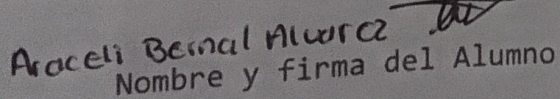 Araceli Bernal Alvarez
Nombre y firma del Alumno